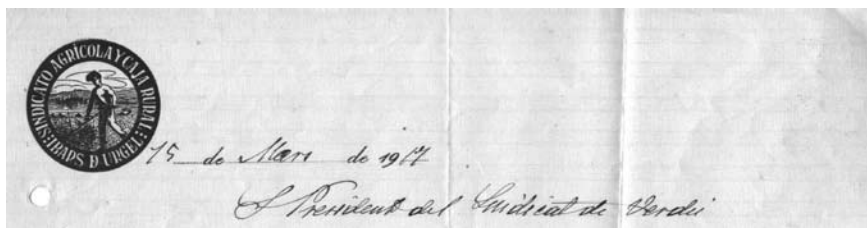 SINDICATO AGRÍCOLA Y CAJA RURAL
IBARS D URGEL
15 de Mars de 1917
President del Sindicat de Verdú